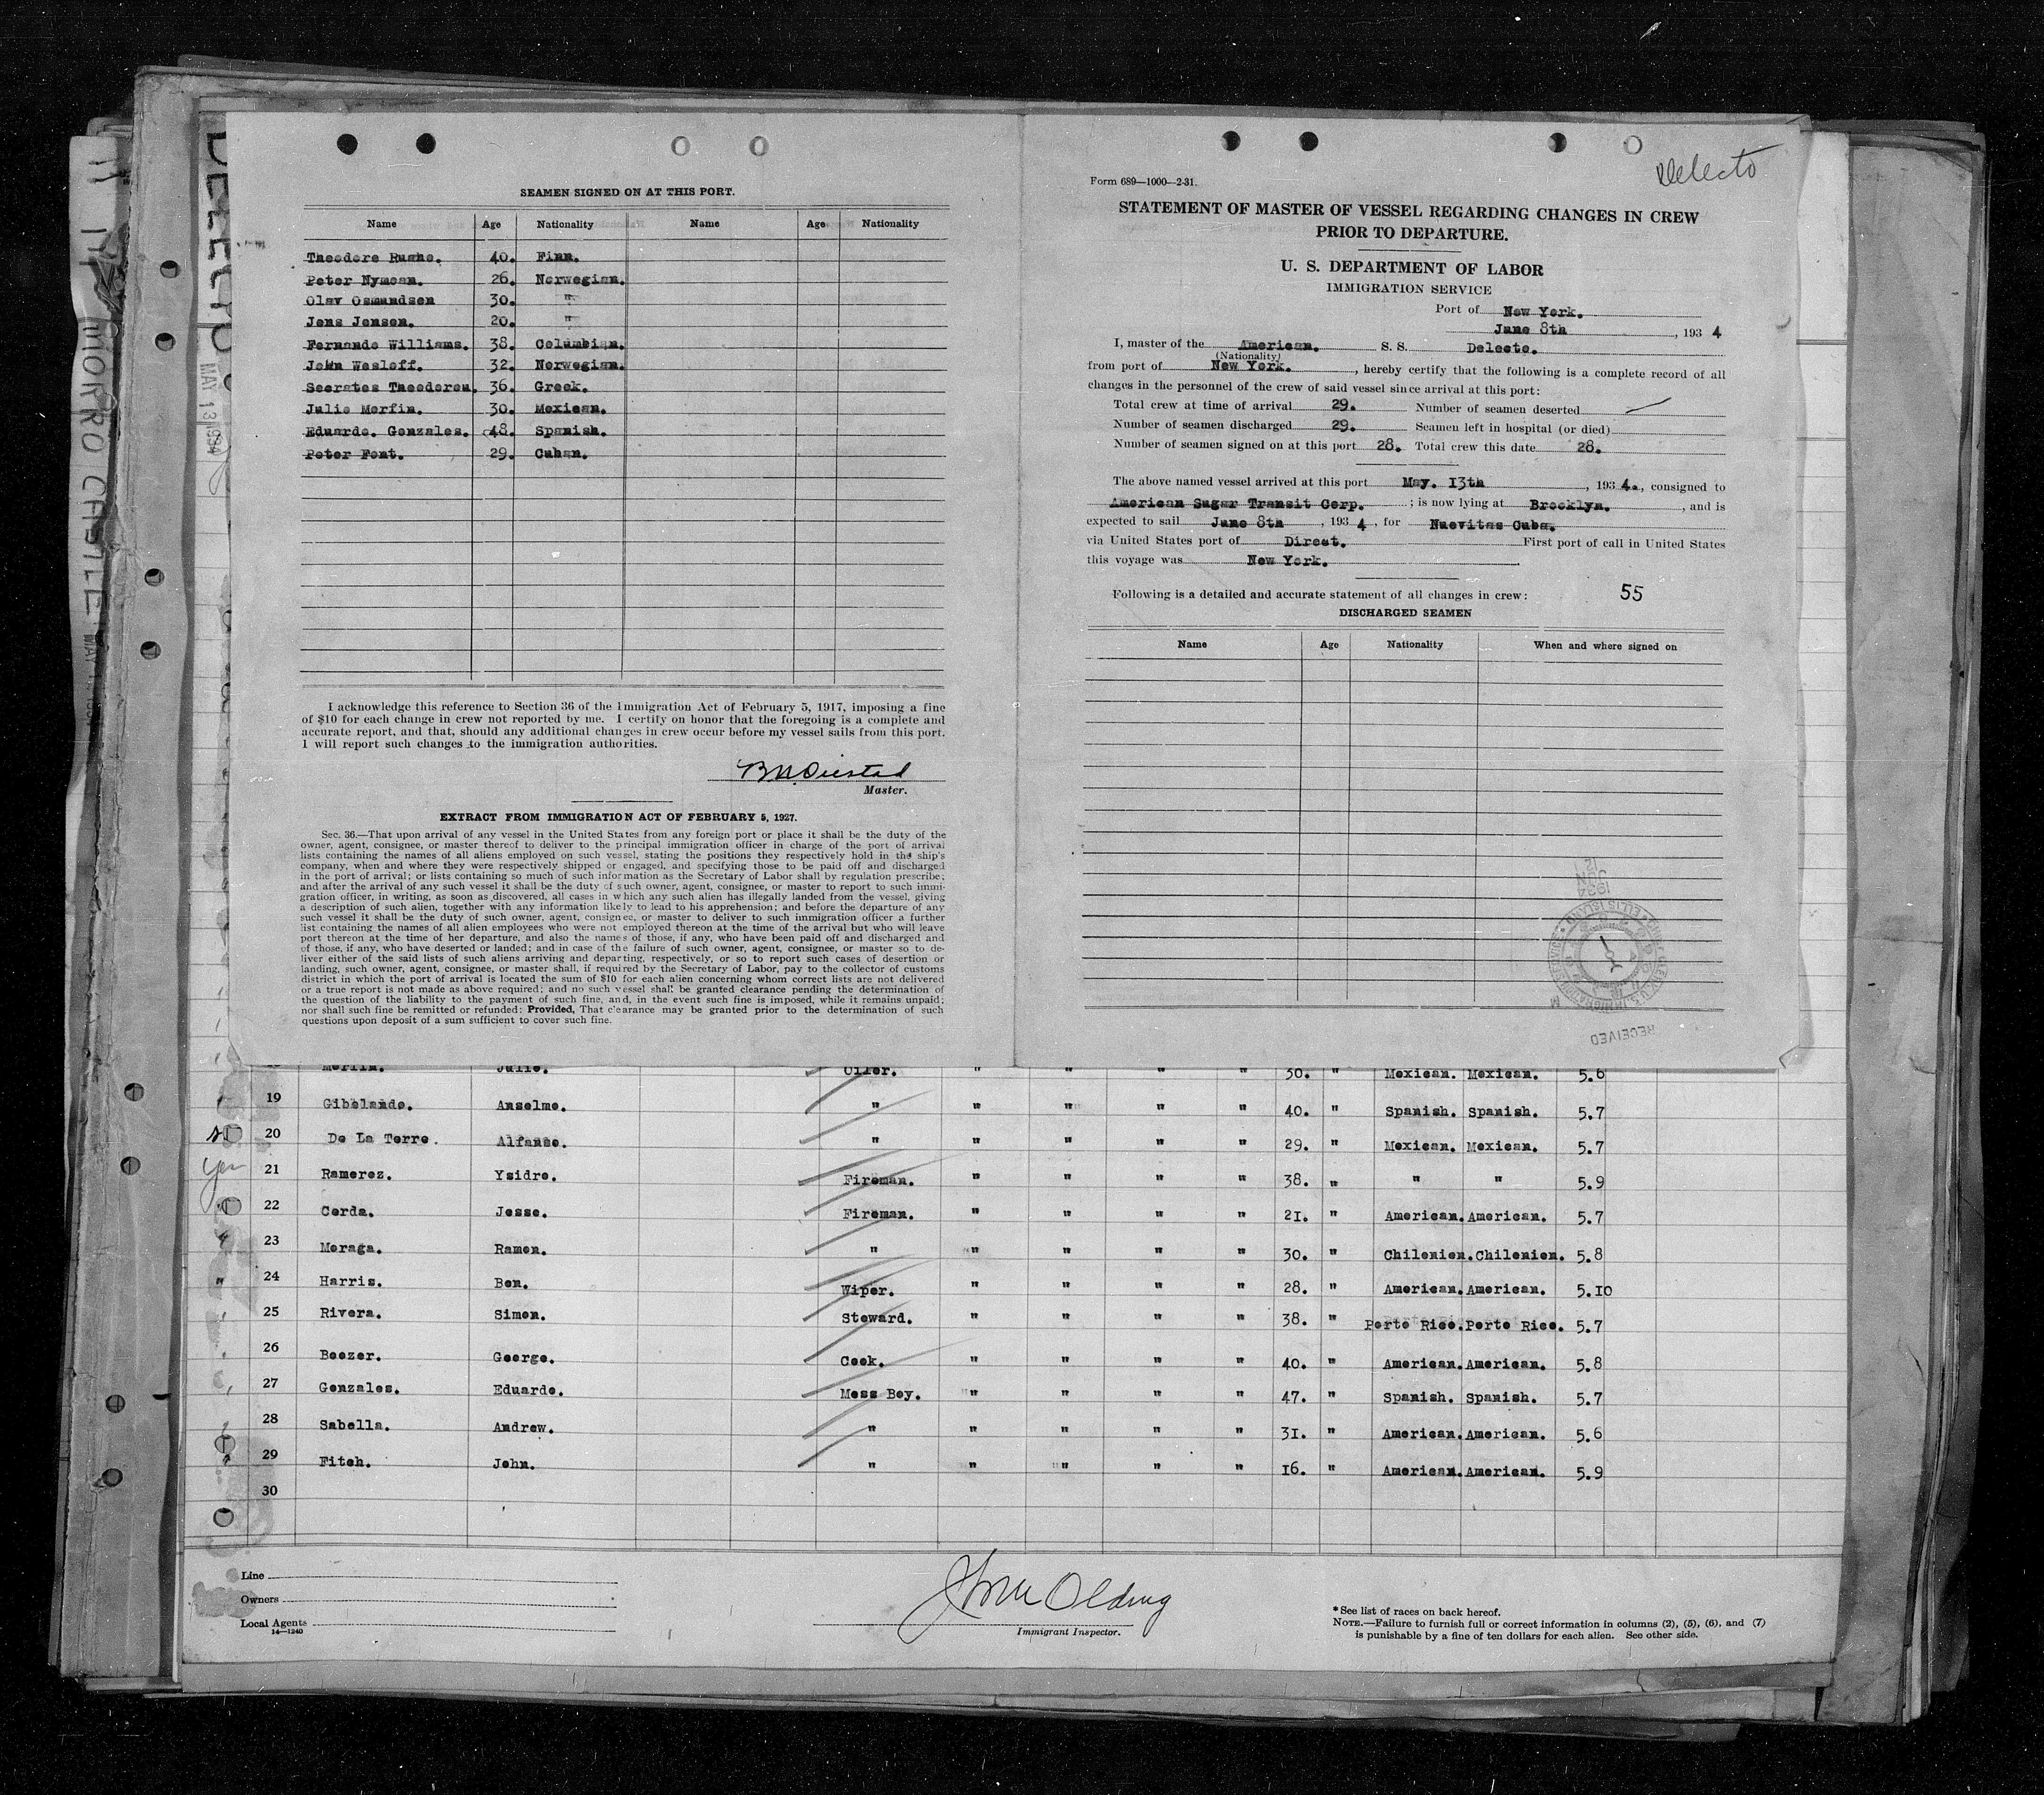 SEAMEN SIGNED ON AT THIS PORT.
Name Age Nationality Name Age Nationality
Theodore 40. Finn.
Peter Nyman. 26. Norwegian.
Olav Osmundsen 30. "
Jens Jensen. 20. "
Fernando Williams. 38. Columbian.
John Wesloff. 32. Norwegian.
Socrates Theodorou. 36. Greek.
Julio Morfin. 30. Mexican.
Eduardo. Gonzales. 48. Spanish.
Peter Font. 29. Cuban.
I acknowledge this reference to Section 36 of the Immigration Act of February 5, 1917, imposing a fine
of $10 for each change in crew not reported by me. I certify on honor that the foregoing is a complete and
accurate report, and that, should any additional changes in crew occur before my vessel sails from this port.
I will report such changes to the immigration authorities.
Master.
EXTRACT FROM IMMIGRATION ACT OF FEBRUARY 5, 1927.
Sec. 36.—That upon arrival of any vessel in the United States from any foreign port or place it shall be the duty of the
owner, agent, consignee, or master thereof to deliver to the principal immigration officer in charge of the port of arrival
lists containing the names of all aliens employed on such vessel, stating the positions they respectively hold in the ship's
company, when and where they were respectively shipped or engaged, and specifying those to be paid off and discharged
in the port of arrival; or lists containing so much of such information as the Secretary of Labor shall by regulation prescribe;
and after the arrival of any such vessel it shall be the duty of such owner, agent, consignee, or master to report to such immi-
gration officer, in writing, as soon as discovered, all cases in which any such alien has illegally landed from the vessel, giving
a description of such alien, together with any information likely to lead to his apprehension; and before the departure of any
such vessel it shall be the duty of such owner, agent, consignee, or master to deliver to such immigration officer a further
list containing the names of all alien employees who were not employed thereon at the time of the arrival but who will leave
port thereon at the time of her departure, and also the names of those, if any, who have been paid off and discharged and
of those, if any, who have deserted or landed; and in case of the failure of such owner, agent, consignee, or master so to de-
liver either of the said lists of such aliens arriving and departing, respectively, or so to report such cases of desertion or
landing, such owner, agent, consignee, or master shall, if required by the Secretary of Labor, pay to the collector of customs
district in which the port of arrival is located the sum of $10 for each alien concerning whom correct lists are not delivered
or a true report is not made as above required; and no such vessel shall be granted clearance pending the determination of
the question of the liability to the payment of such fine, and, in the event such fine is imposed, while it remains unpaid;
nor shall such fine be remitted or refunded: Provided, That clearance may be granted prior to the determination of such
questions upon deposit of a sum sufficient to cover such fine.
Delecto
Form 689—1000—2-31.
STATEMENT OF MASTER OF VESSEL REGARDING CHANGES IN CREW
PRIOR TO DEPARTURE.
U. S. DEPARTMENT OF LABOR
IMMIGRATION SERVICE
Port of New York.
June 8th, 1934
I, master of the American. S. S. Delecto.
(Nationality)
from port of New York., hereby certify that the following is a complete record of all
changes in the personnel of the crew of said vessel since arrival at this port:
Total crew at time of arrival 29. Number of seamen deserted —
Number of seamen discharged 29. Seamen left in hospital (or died)
Number of seamen signed on at this port 28. Total crew this date 28.
The above named vessel arrived at this port May. 13th, 1934., consigned to
American Sugar Transit Corp. ; is now lying at Brooklyn., and is
expected to sail June 8th, 1934, for Nuevitas Cuba.
via United States port of Direct. First port of call in United States
this voyage was New York.
Following is a detailed and accurate statement of all changes in crew: 55
DISCHARGED SEAMEN
Name Age Nationality When and where signed on
1934
JUN
12
ELLIS ISLAND
RECEIVED
DELECTO
MAY 13 1934
MORRO CASTLE
Morfin. Julio. Oiler. " " " " 30. " Mexican. Mexican. 5.6
19 Gibelando. Anselmo. " " " " " 40. " Spanish. Spanish. 5.7
20 De La Torre. Alfanso. " " " " " 29. " Mexican. Mexican. 5.7
yes 21 Ramerez. Ysidro. Fireman. " " " " 38. " " " 5.9
22 Cerda. Jesse. Fireman. " " " " 21. " American. American. 5.7
23 Moraga. Ramon. " " " " " 30. " Chilenien. Chilenien. 5.8
" 24 Harris. Ben. Wiper. " " " " 28. " American. American. 5.10
25 Rivera. Simon. Steward. " " " " 38. " Porto Rico. Porto Rico. 5.7
26 Boozer. George. Cook. " " " " 40. " American. American. 5.8
27 Gonzales. Eduardo. Mess Boy. " " " " 47. " Spanish. Spanish. 5.7
28 Sabella. Andrew. " " " " " 31. " American. American. 5.6
29 Fitch. John. " " " " " 16. " American. American. 5.9
30
Line
Owners
Local Agents
14—1240
Olding
Immigrant Inspector.
*See list of races on back hereof.
NOTE.—Failure to furnish full or correct information in columns (2), (5), (6), and (7)
is punishable by a fine of ten dollars for each alien. See other side.